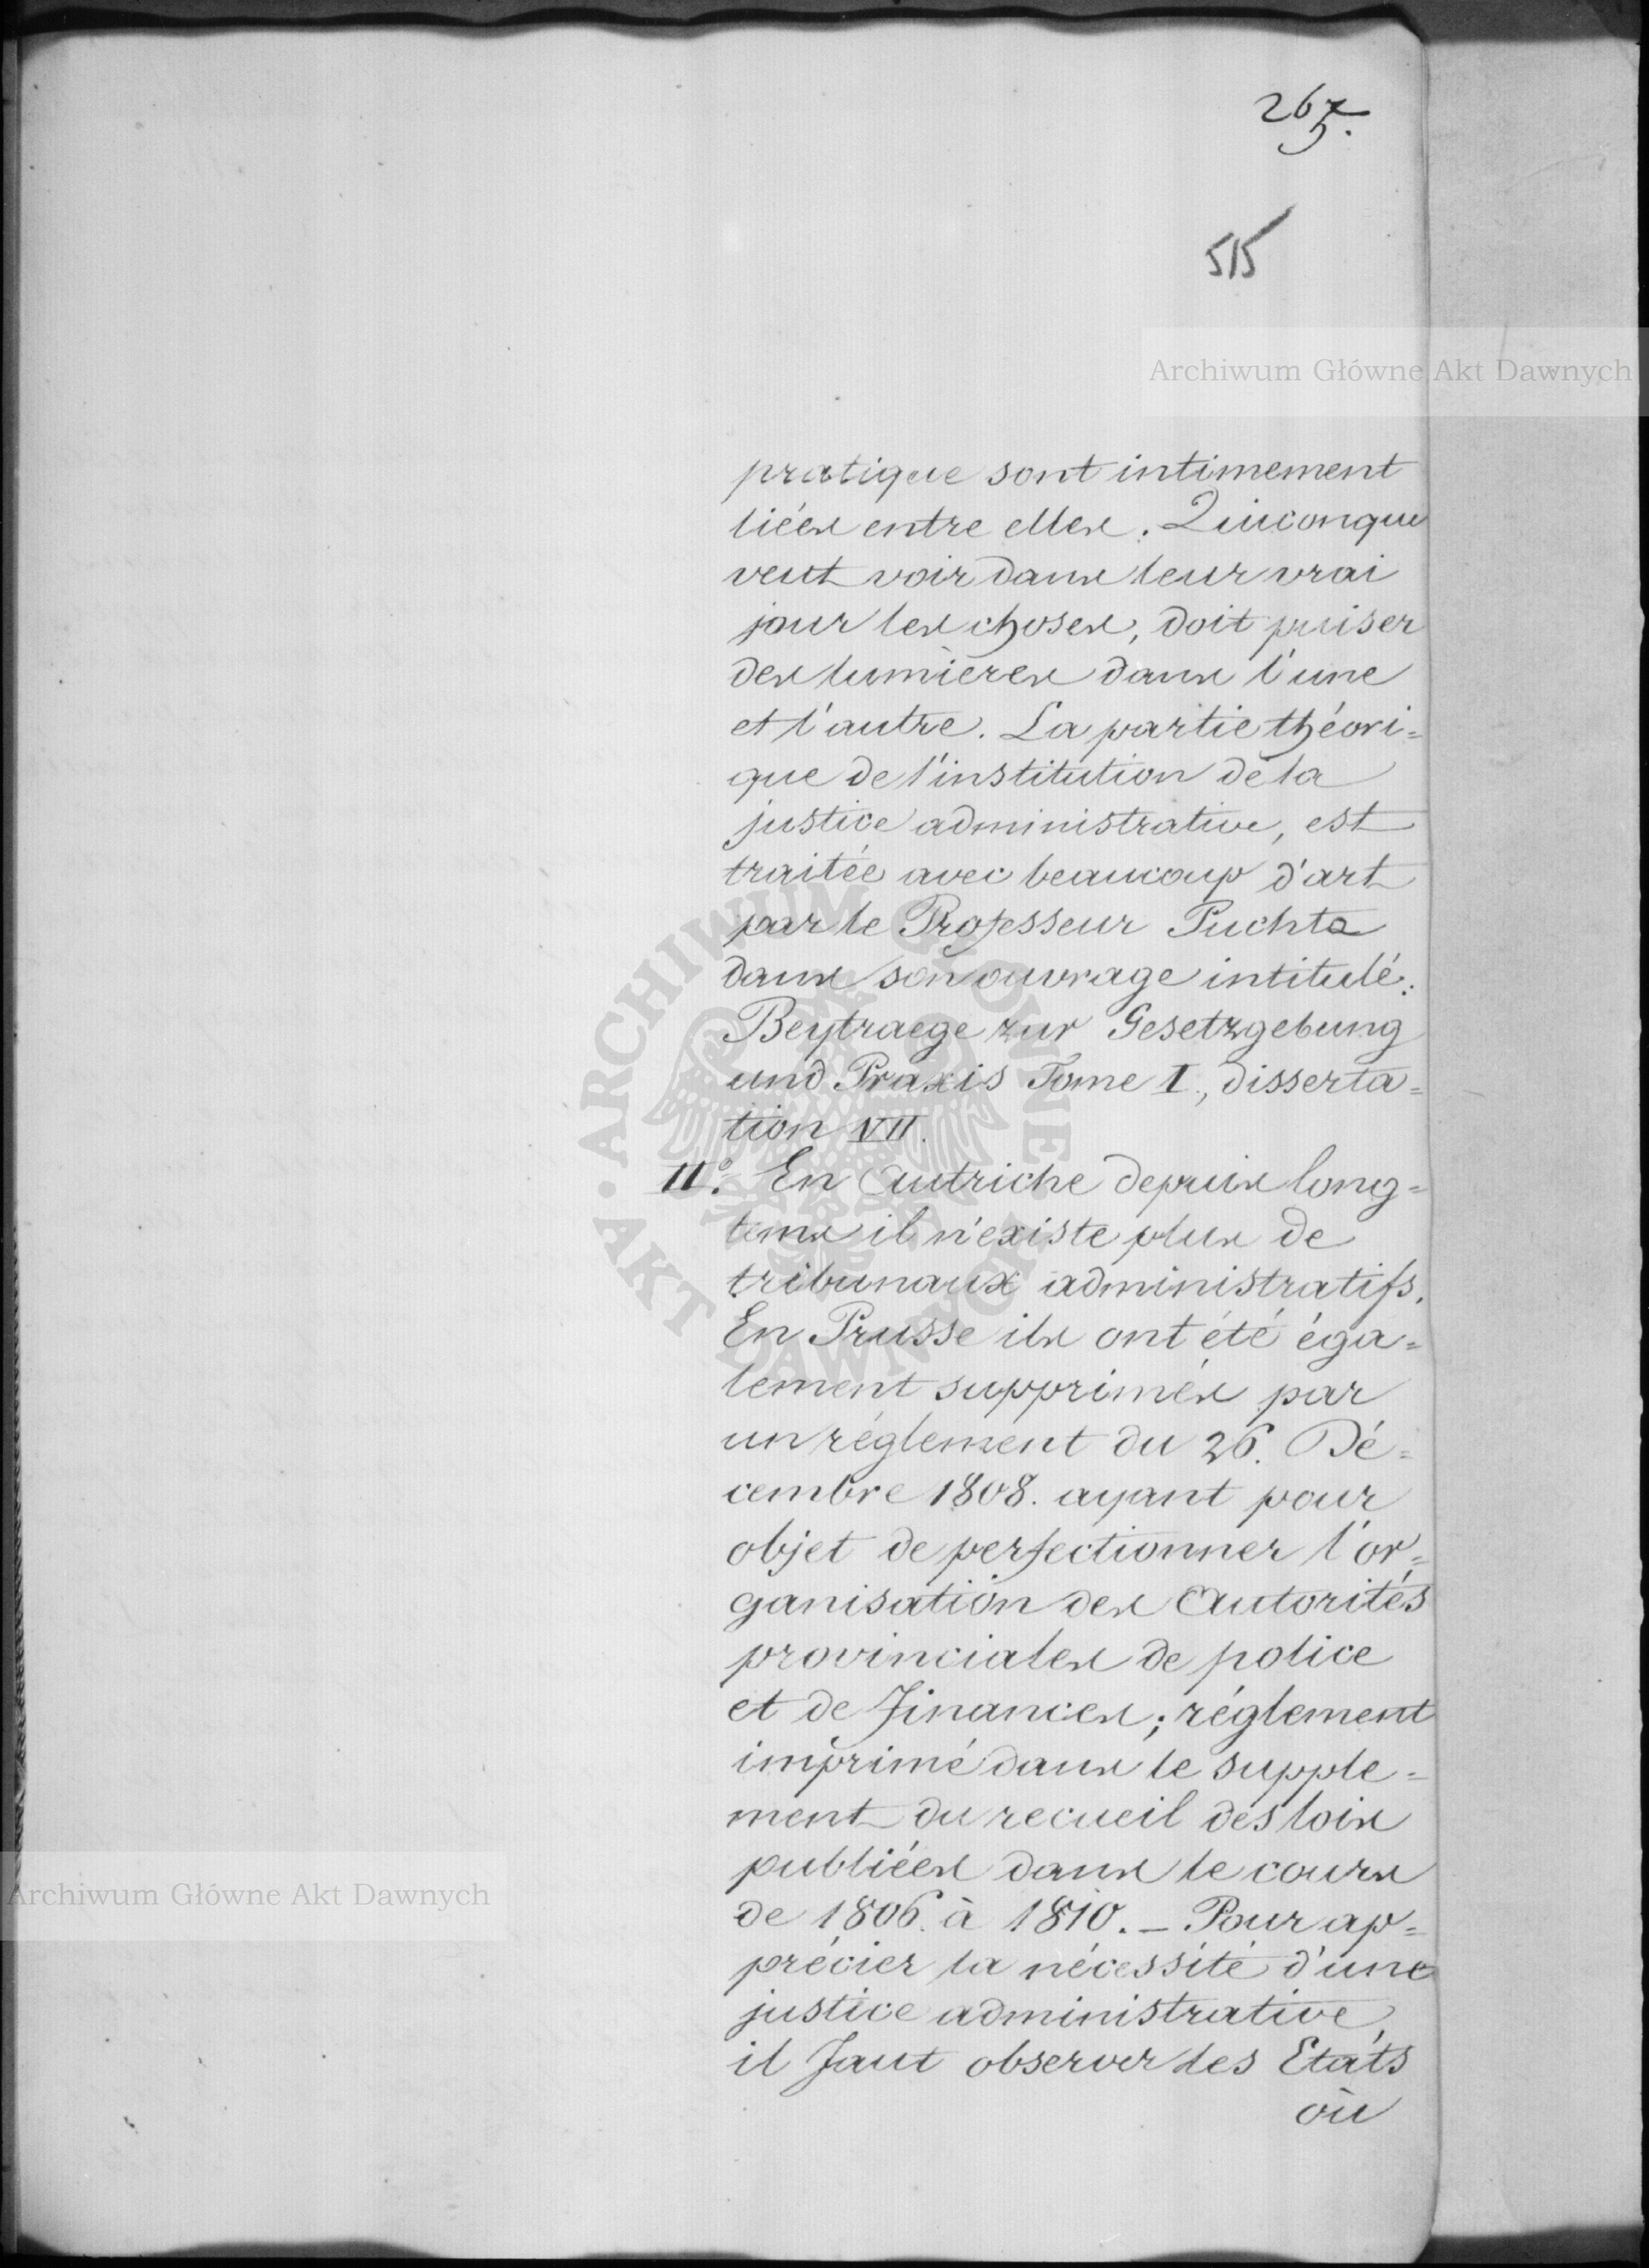 267.
515
Archiwum Główne Akt Dawnych
pratique sont intimement
liées entre elles. Quiconque
veut voir dans leur vrai
jour les choses, doit puiser
des lumières dans l'une
et l'autre. La partie théori=
que de l'institution de la
justice administrative, est
traitée avec beaucoup d'art
par le Professeur Puchta
dans son ouvrage intitulé:
Beytraege zur Gesetzgebung
und Praxis Tome I., disserta=
tion VII.
II°. En Autriche depuis long=
tems il n'existe plus de
tribunaux administratifs.
En Prusse ils ont été éga=
lement supprimés par
un réglement du 26. Dé=
cembre 1808. ayant pour
objet de perfectionner l'or=
ganisation des Autorités
provinciales de police
et de Finances; réglement
imprimé dans le supple=
ment du recueil des lois
publiées dans le cours
de 1806. à 1810. _ Pour ap=
précier la nécessité d'une
justice administrative,
il faut observer les Etats
où
ARCHIWUM GŁÓWNE AKT DAWNYCH
Archiwum Główne Akt Dawnych